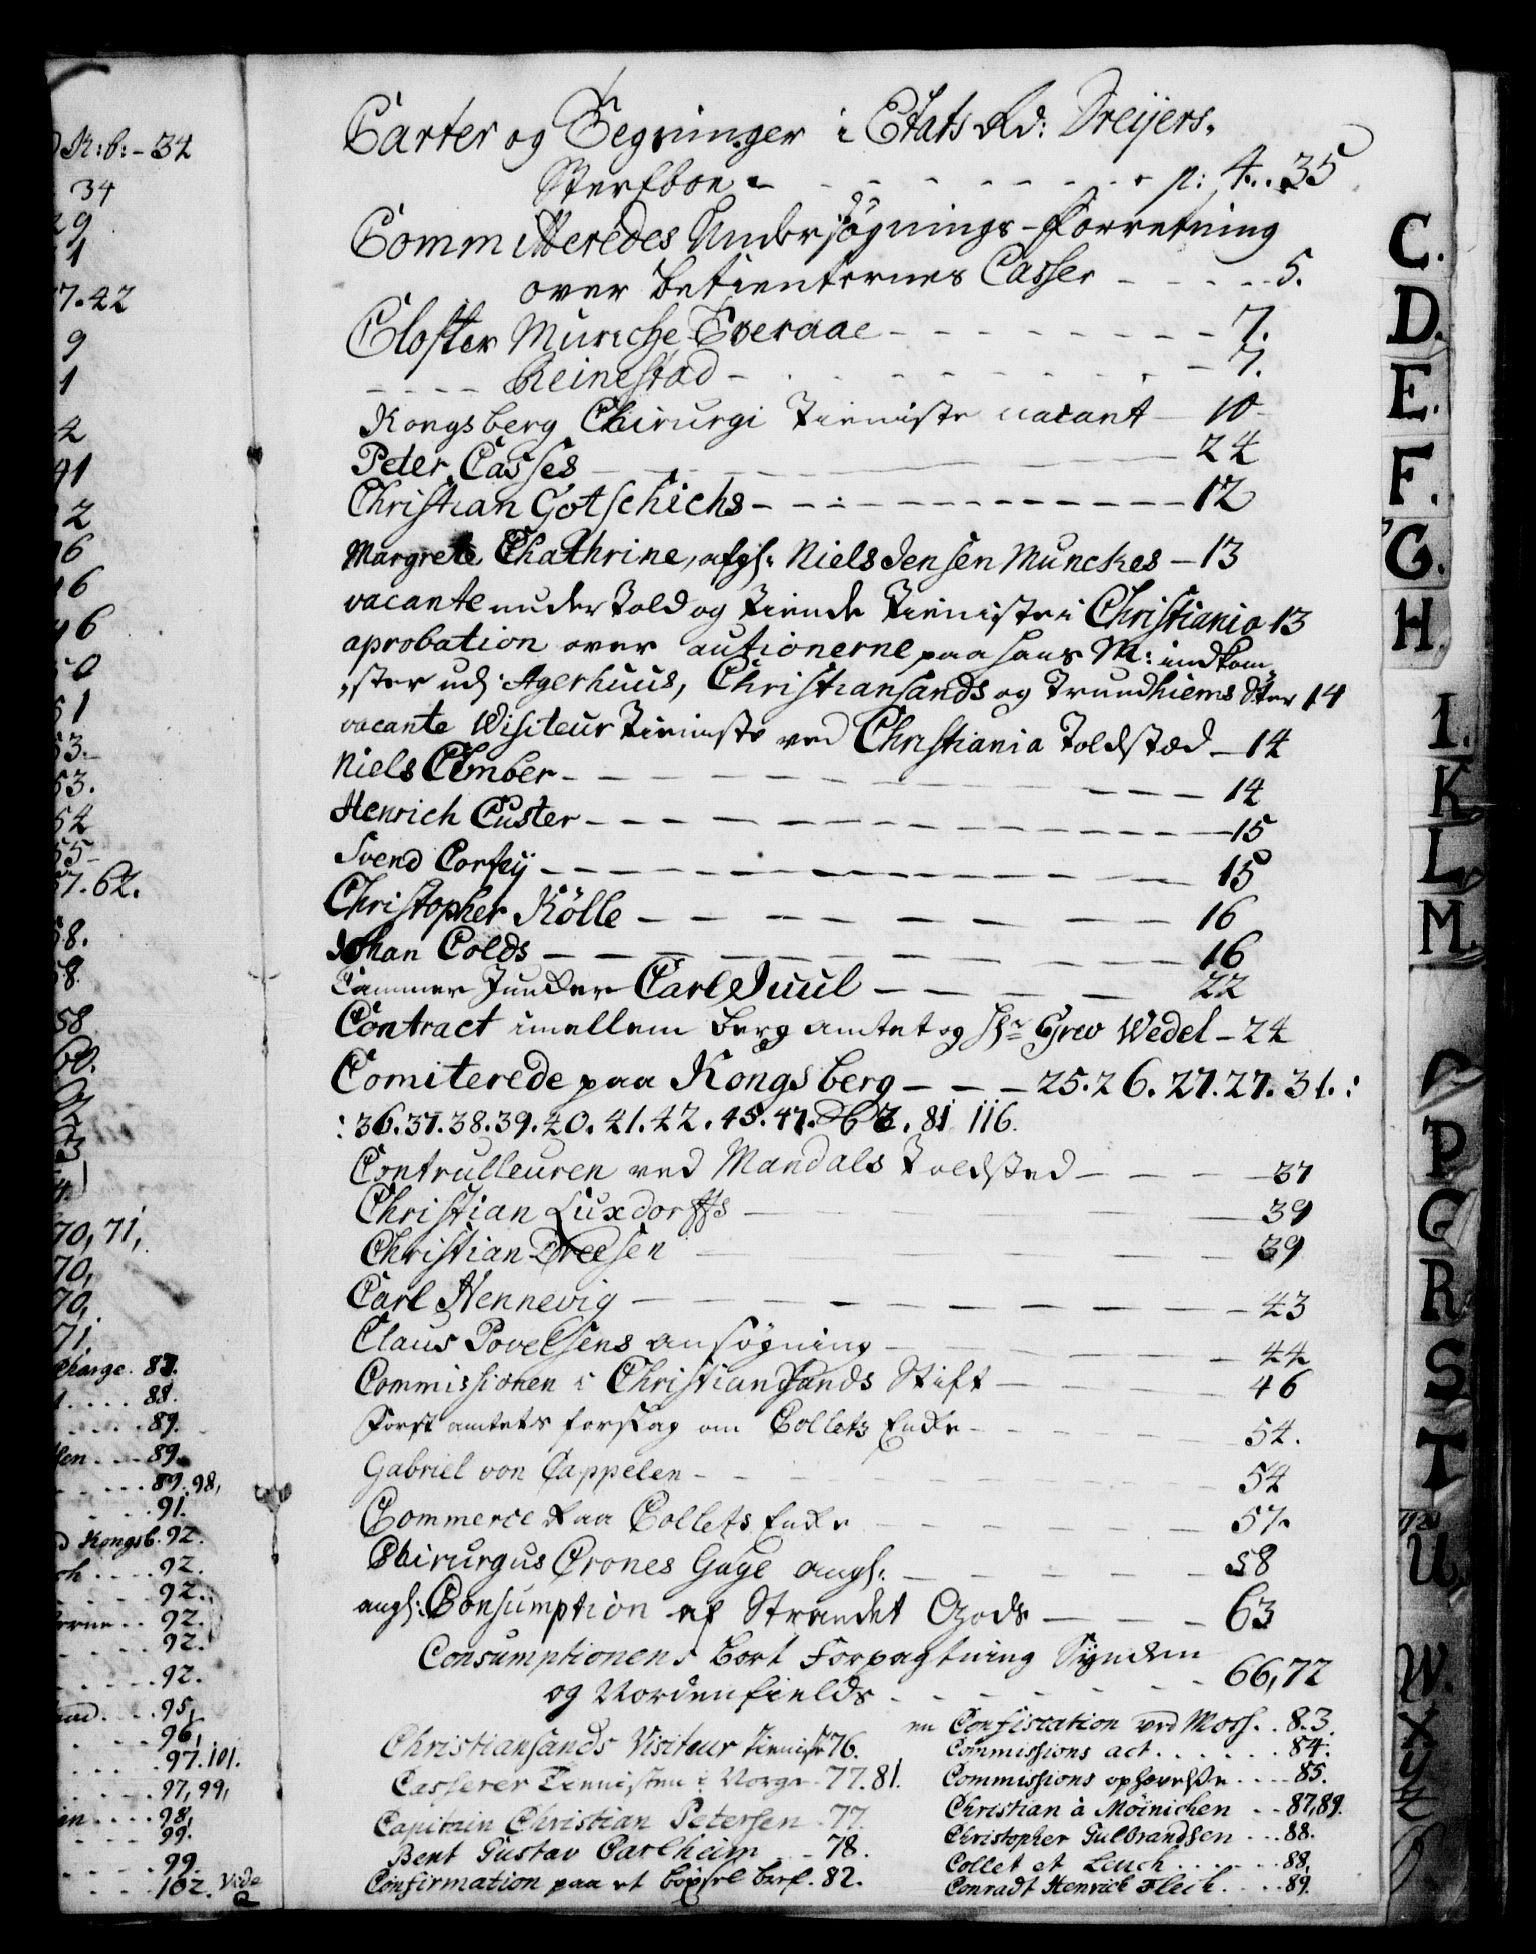 Carter og Tegninger i Etats Rd: Dreijers.
Sterfboe - - - - - p: 4...35
Committeredes Undersøgnings-Forretning
over betienternes Casser - - - - 5.
Closter Muncke Everaae - - - - 7.
- - - - Reinestad - - - - 7.
Kongsberg Chirurgi Tieniste vacant - 10
Peter Casses - - - - 24
Christian Gotschichs - - - - 12
Margrete Chathrine, afgl: Niels Jensen Munckes - 13
vacante under Told og Tiende Tieniste i Christiania 13
aprobation over autionerne paa hans M: indkom
ster udj Agerhuus, Christiansands og Trundhiems Stter 14
vacante Wisiteur Tieniste ved Christiania Toldsted - 14
Niels Cember - - - - 14
Henrich Custer - - - - 15
Svend Corfeij - - - - 15
Christopher Kölle - - - - 16
Johan Colds - - - - 16
Cammer Juncker Carl Juul - - - - 22
Contract imellem Berg amtet og Hr Grev Wedel - 24
Comiterede paa Kongsberg - - - 25.26.27.27.31.:
:36.37.38.39.40.41.42.45.47. 81 116.
Contrulleuren ved Mandals Toldsted - - - - 37
Christian Luxdorffs - - - - 39
Christian - - - - 39
Carl Hennevig - - - - 43
Claus Povelsens ansøgning - - - - 44
Commissionen i Christiansands Stift - - - - 46
Forst amtets forslag om Collets Enke - - - - 54.
Gabriel von Cappelen - - - - 54
Commerce Raa Collets Enke - - - - 57.
Chirurgus Crones Gage angl: - - - - 58
angl: Consumption af Strandet Gods - - - - 63
Consumptionens bort Forpagtning Synden
og Nordenfields - - - - 66,72
Christiansands Visiteur Tieniste 76.
Casserer Tienisten i Norge - 77.81.
Capitain Christian Petersen - 77.
Bent Gustav Carlheim - - 78.
Confirmation paa et böxsel bref. 82.
en Confiscation ved Moss. . 83.
Commissions act. . . . . . 84.
Commissions ophævelse. . . . 85.
Christian à Möinichen . . 87,89.
Christopher Gulbrandsen . . . 88.
Collet et Leuch. . . . . . 88,
Conradt Henrich Fleich. . . . 89.
R:b:- 34
34
29
1
7.42
9
1
2
41
2
6
6
46
50
51
53.
53.
54
55
57.62.
58.
58.
58
60.
70,71,
70,
70,
71,
Charge. 87.
88.
89.
89.
89.98,
91.
d Kongsb. 92.
92.
92.
92.
92.
92.
95,
96,
97.101.
97,99,
98,
99.
99.
102. Vide
C.
D.
E.
F.
G.
H.
I.
K
L
M
P
G
R
S
T
U
W.
X